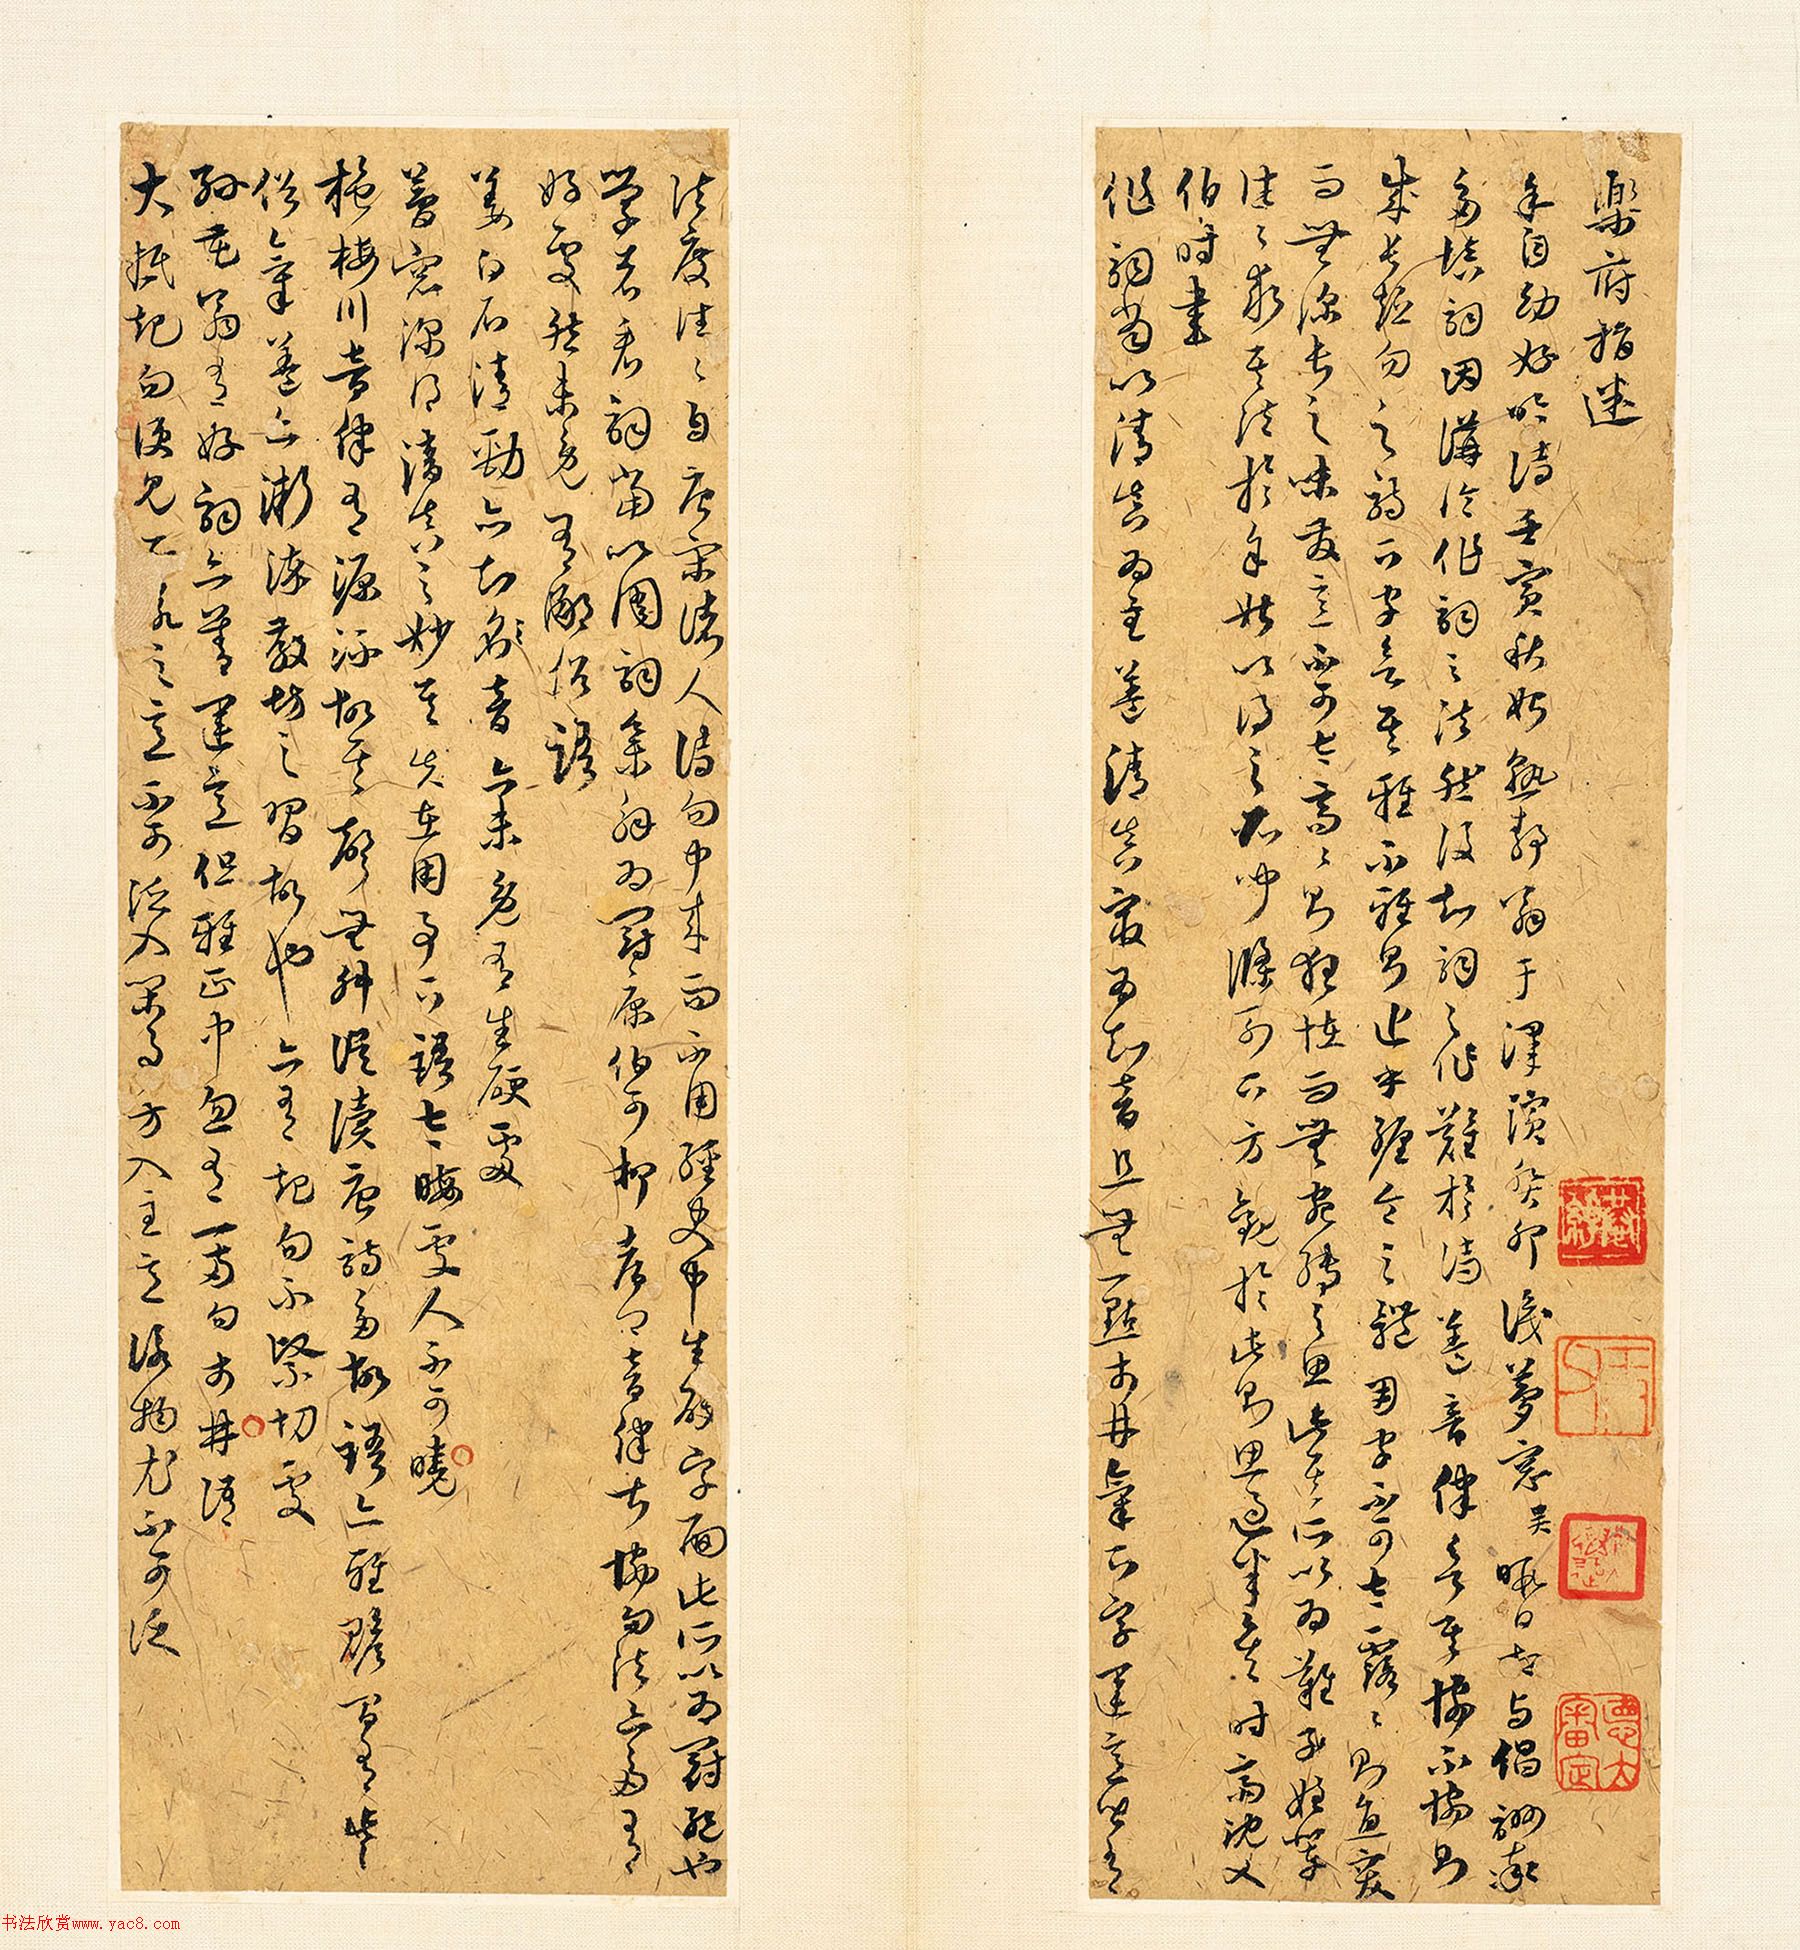 樂府指迷
余自幼好吟詩壬寅秋始識靜翁于澤濱癸卯識夢窗吳暇日相與倡酬率
多填詞因講論作詞之法然後知詞之作難於詩蓋音律欲其協不協則
成長短句之詩下字欲其雅不雅則近乎纏令之體用字不可太露露則直突
而無深長之味發意不可太高高則狂怪而無柔婉之思此其所以為難子姪輩
往往求其法於余姑以得之所聞條列下方觀於此則思過半矣時齋沈义
伯時書
作詞當以清真為主蓋清真最為知音且無一點市井氣下字運意皆有
法度往往自唐宋諸人詩句中來而不用經史中生硬字面此所以為冠絕也
學者看詞當以周詞集解為冠康伯可柳耆卿音律甚協句法亦多有
好處然未免有鄙俗語
姜白石清勁亦知名音亦未免有生硬處
夢窗深得清真之妙其失在用事下語太晦處人不可曉
施梅川音律有源流故其聲無舛誤讀唐詩多故語亦雅贍間有些
俗氣蓋亦漸染教坊之習故也亦有起句不緊切處
孫花翁有好詞亦善運意但雅正中忽有一兩句市井語
大抵起句便見所詠之意不可泛入閒事方入主意詠物尤不可泛
書法欣赏www.yac8.com